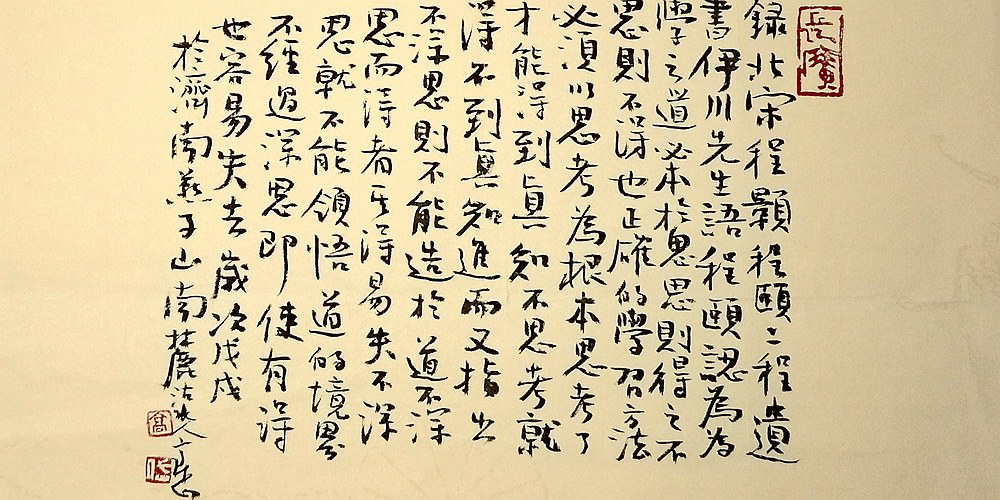 錄北宋程顥程頤二程遺
書伊川先生語程頤認為為
學之道必本於思思則得之不
思則不得也正確的學習方法
必須以思考為根本思考了
才能得到真知不思考就
得不到真知進而又指出
不深思則不能造於道不深
思而得者其得易失不深
思就不能領悟道的境界
不經過深思即使有得
也容易失去歲次戊戌
於濟南燕子山南麓